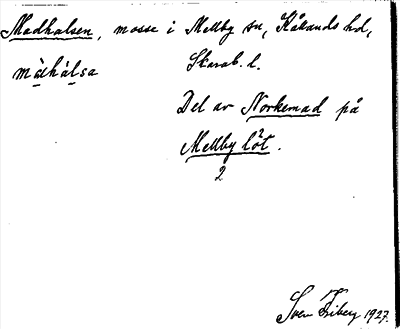 Madhalsen, mosse i Mellby sn, Kållands hd,
màhàlsa Skarab. l.
Del av Norkemad på
Mellby löt.
2
Sven Friberg 1927.